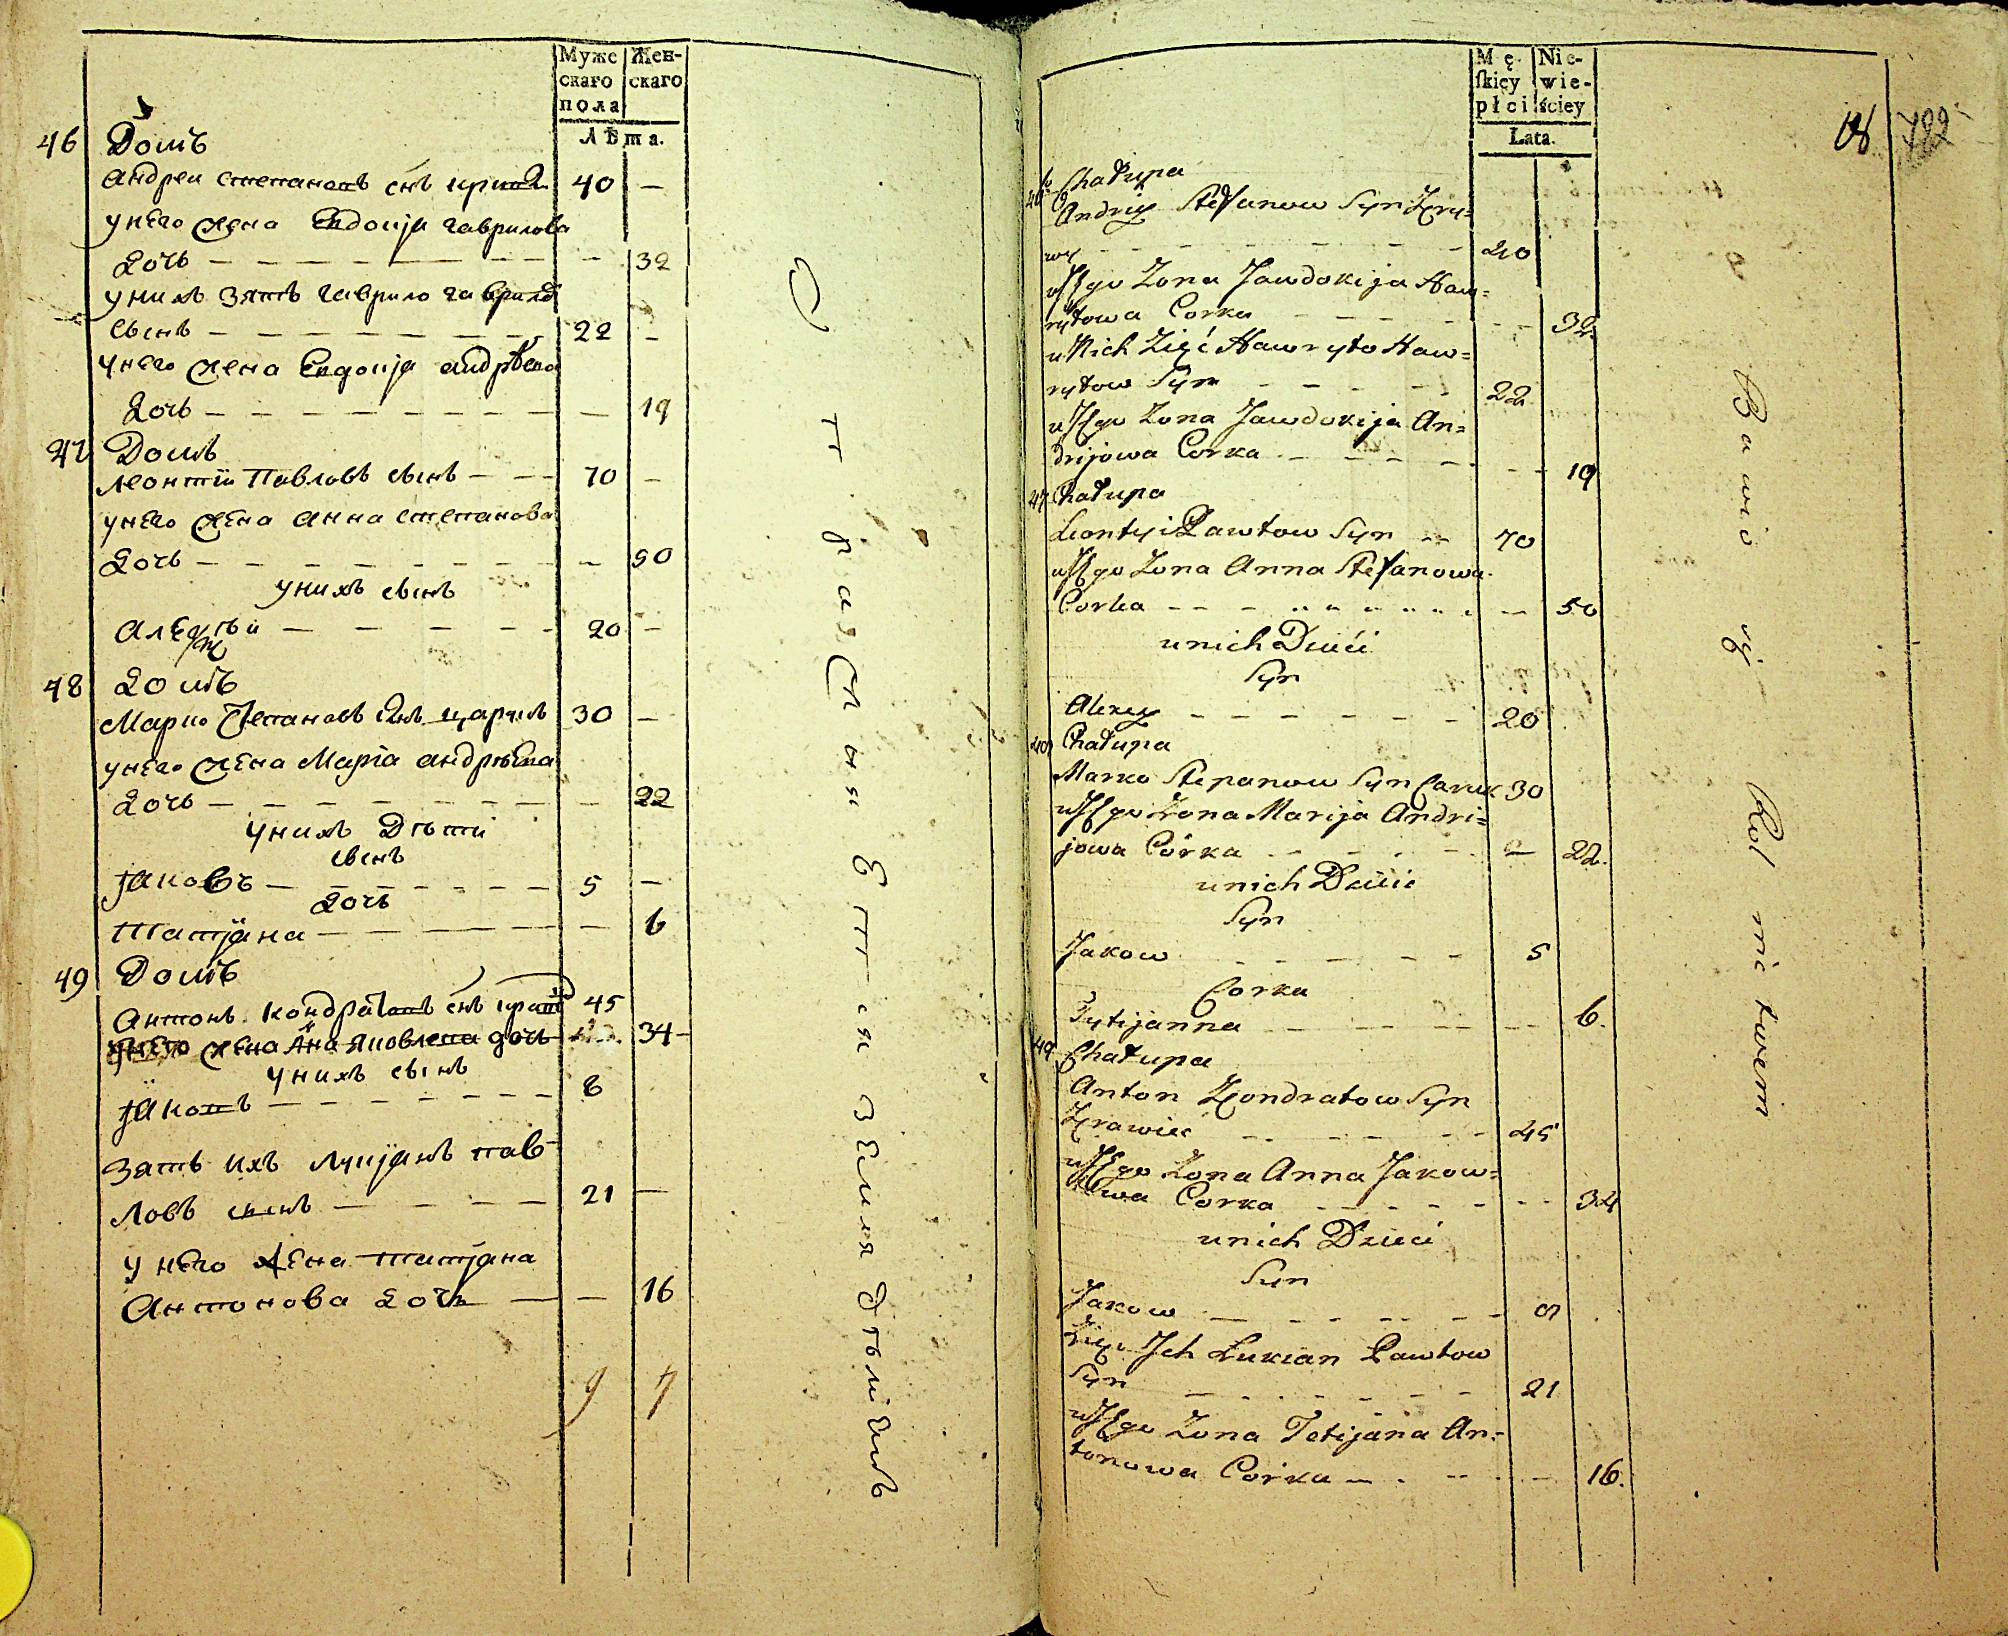 Муже Жен-
скаго скаго
пола
Лѣта.
46 Домъ
Андреи степановъ снъ 40 —
унего жена Евдокіја гаврилова
дочь — 32
унихъ зять гаврило гаврилов
сынъ — 22 —
унего жена Евдокіја андрѣева
дочь — 19
47 Домъ
Леонтіи Павловъ сынъ — 70 —
унего жена анна степанова
дочь — 50
унихъ сынъ
Алеѯѣи — 20 —
48 домъ
Марко Степановъ снъ царукъ 30 —
унего жена Маріа андрѣева
дочь — 22
унихъ Дѣти
сынъ
Јаковъ — 5 —
дочь
татјана — 6
49 Домъ
Антонъ Кондратовъ снъ 45
унего жена Анна Яковлева дочь 34
унихъ сынъ
Јаковъ — 8
зять ихъ лукјанъ пав-
ловъ сынъ — 21 —
у него жена татјана
Антонова дочь — 16
9 7
Отправляется
земля
Mę- Nie-
ſkiey wie-
płci ściey
Lata.
722
46 Chałupa
Andriy Stefanow Syn Kra-
wy 40
u Jego Zona Jawdokija Haw-
ryłowa Corka 32
u Nich Zięć Hawryło Haw-
ryłow Syn 22
u Jego Zona Jawdokija An-
drijowa Corka 19
47 Chałupa
Leontyi Pawłow Syn 70
u Jego Zona Anna Stefanowa
Corka 50
u nich Dzieci
Syn
Alexey 20
48 Chałupa
Marko Stepanow Syn Caruk 30
u Jego Zona Marija Andri-
jowa Córka 22.
u nich Dzieci
Syn
Jakow 5
Corka
Tytijanna 6.
49 Chałupa
Anton Kondratow Syn
Krawiec 45
u Jego Zona Anna Jakow-
lewa Corka 34
u nich Dzieci
Syn
Jakow 8
Zięć Jch Łukian Pawłow
Syn 21
u Jego Zona Tetijana An-
tonowa Córka 16.